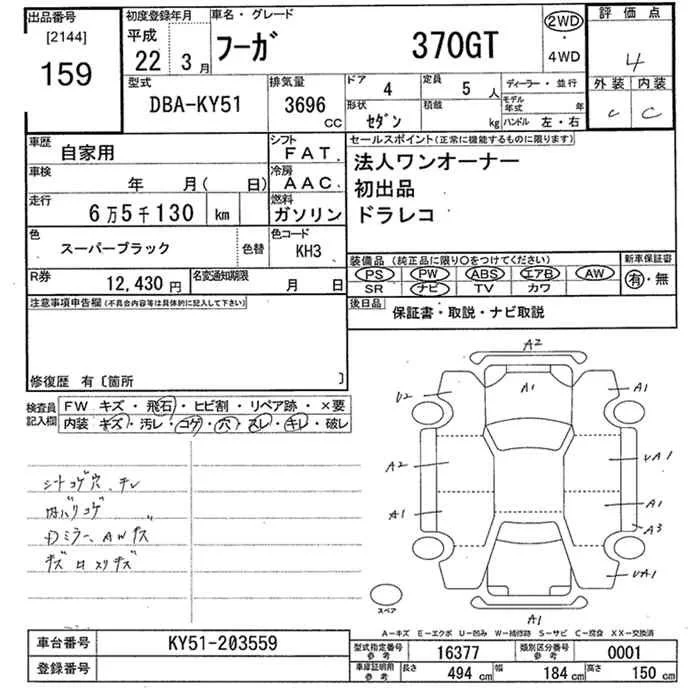 出品番号
[2144]
159
初度登録年月
平成
22年 3月
車名・グレード
フーガ 370GT
2WD
・
4WD
評価点
4
外装 内装
C C
型式
DBA-KY51
排気量
3696 CC
ドア 4
定員 5 人
ディーラー・並行
形状 セダン
積載 kg
モデル年式 年
ハンドル 左・右
車歴 自家用
シフト FAT.
車検 年 月( 日)
冷房 AAC.
走行 6万5千130 km
燃料 ガソリン
色 スーパーブラック 色替
色コード KH3
R券 12,430円
名変通知期限 月 日
セールスポイント(正常に機能するものに限ります)
法人ワンオーナー
初出品
ドラレコ
装備品(純正品に限り○をつけてください)
新車保証書
PS PW ABS エアB AW
SR ナビ TV カワ
有・無
後日品 保証書・取説・ナビ取説
注意事項申告欄(不具合内容等は具体的に記入して下さい)
修復歴 有〔箇所 〕
検査員記入欄
FW キズ・飛石・ヒビ割・リペア跡・×要
内装 キズ・汚レ・コゲ・穴・スレ・キレ・破レ
シートコゲ穴、チレ
内バリコゲ
Dミラー、AWキズ
A2
A1
U2
A1
A2
UA1
A1
A1
A3
UA1
A1
スペア
A-キズ E-エクボ U-凹み W-補修跡 S-サビ C-腐食 XX-交換済
車台番号 KY51-203559
登録番号
型式指定番号参考 16377
類別区分番号参考 0001
車庫証明用参考 長さ 494 cm 幅 184 cm 高さ 150 cm